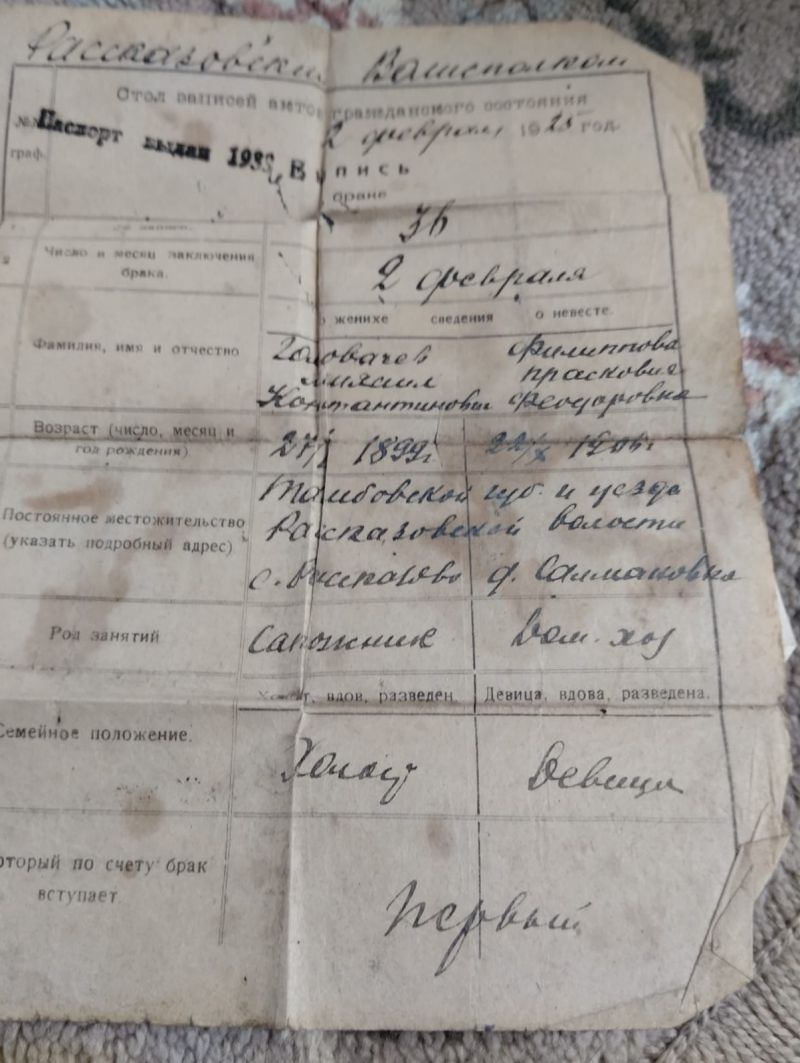 Рассказовский Волисполком
Стол записей актов гражданского состояния
Паспорт выдан 193
2 февраля 1925 год.
граф.
Запись
браке
36
Число и месяц заключения брака.
2 февраля
о женихе сведения о невесте.
Фамилия, имя и отчество
Головачев Филиппова
Михаил Прасковья
Константинович Феодоровна
Возраст (число, месяц и
год рождения)
27/I 1899 г.
Постоянное местожительство
(указать подробный адрес)
Тамбовской губ. и уезда
Рассказовской волости
с. Рассказово д. Салмаковка
Род занятий
Сапожник Дом. хоз
Холост, вдов, разведен. Девица, вдова, разведена.
Семейное положение.
Холост Девица
оторый по счету брак
вступает
Первый